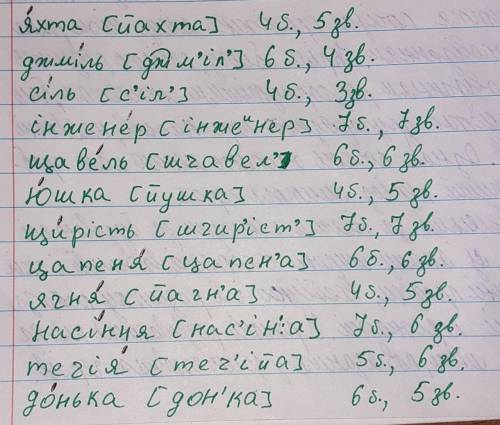 я́хта [йахта] 4б., 5зв.
джмі́ль [д͡жм'іл'] 6б., 4зв.
сі́ль [с'іл'] 4б., 3зв.
інжене́р [інжеинер] 7б., 7зв.
щаве́ль [шчавел'] 6б., 6зв.
ю́шка [йушка] 4б., 5 зв.
щи́рість [шчир'іст'] 7б., 7зв.
цапеня́ [цапен'а] 6б., 6зв.
ягня́ [йагн'а] 4б., 5зв.
насі́ння [нас'ін':а] 7б., 6 зв.
течія́ [теч'ійа] 5б., 6зв.
до́нька [дон'ка] 6б., 5зв.